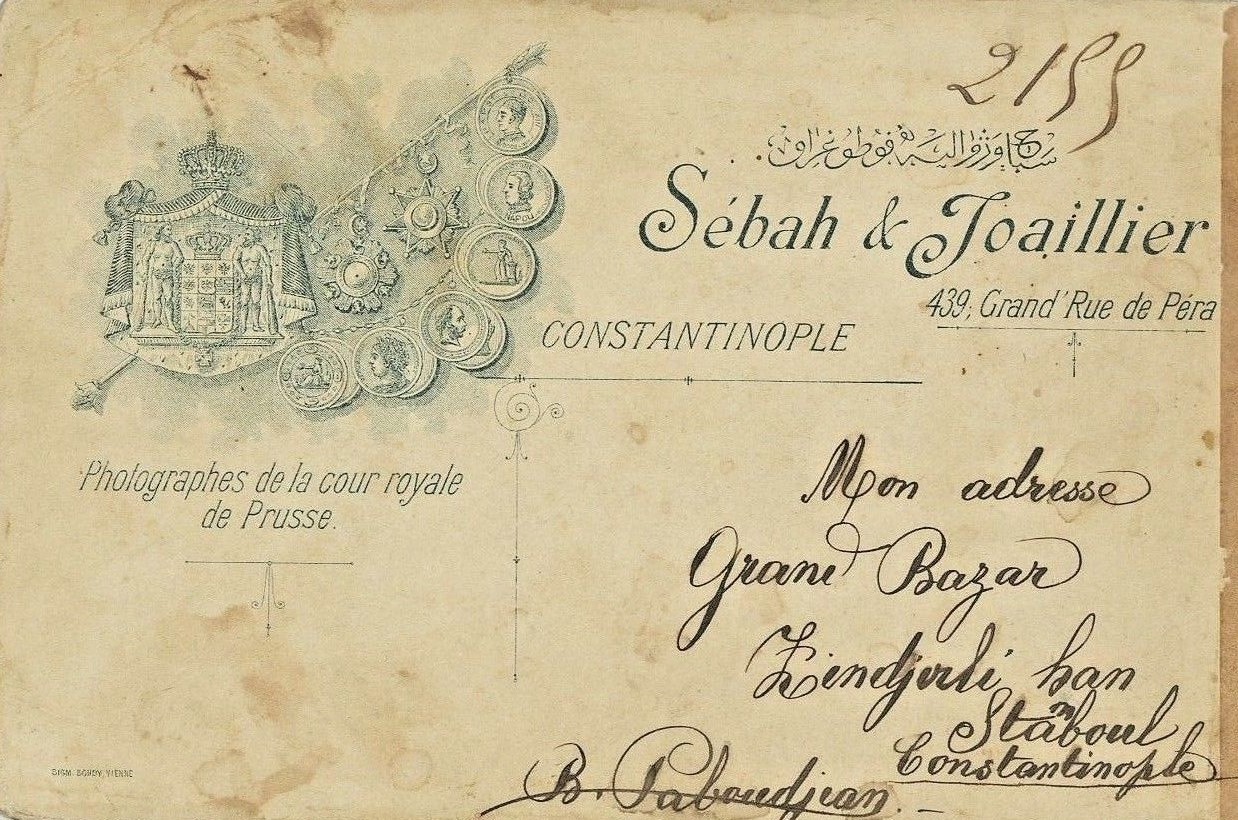 2155
سباح وژواليه فوطوغراف
Sébah & Joaillier
439, Grand'Rue de Péra
CONSTANTINOPLE
Photographes de la cour royale
de Prusse.
Mon adresse
Grand Bazar
Zindjirli han
Stamboul
Constantinople
B. Paboudjian.
VIENNE